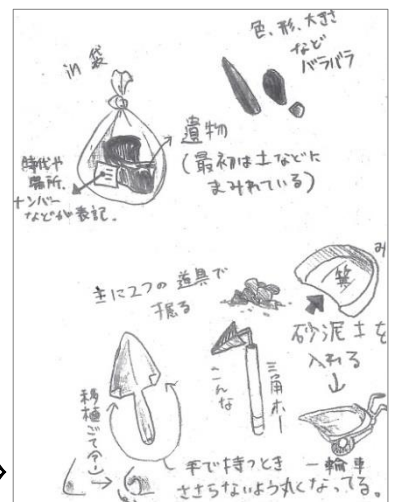 in 袋
色、形、大きさ
など
バラバラ
遺物
(最初は土などに
まみれている)
時代や
場所、
ナンバー
などが表記。
主に2つの道具で
掘る
み
箕
砂泥土を
入れる
三角ホー
こんな
移植ごて
手で持つとき
ささらないよう丸くなってる。
一輪車